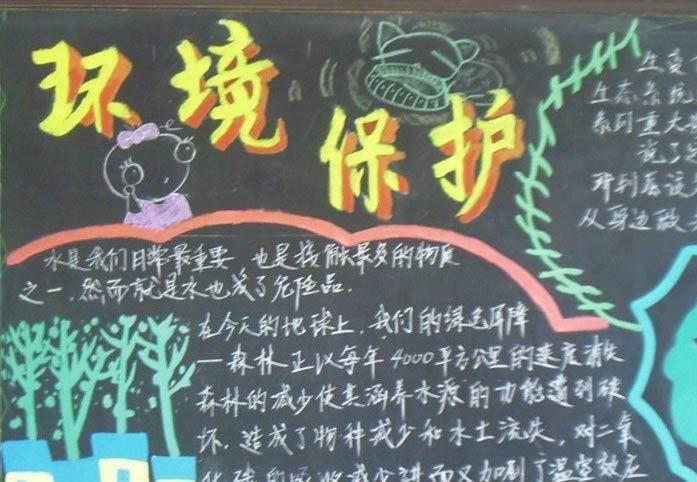 环境
保护
水是我们日常最重要 也是接触最多的物质
之一,然而就是水也成了危险品.
在今天的地球上,我们的绿色屏障
—森林正以每年4000平方公里的速度消失
森林的减少使其涵养水源的功能遭到破
坏,造成了物种减少和水土流失,对二氧
化碳的吸收减少进而又加剧了温室效应
生态系统
系列重大
从身边做